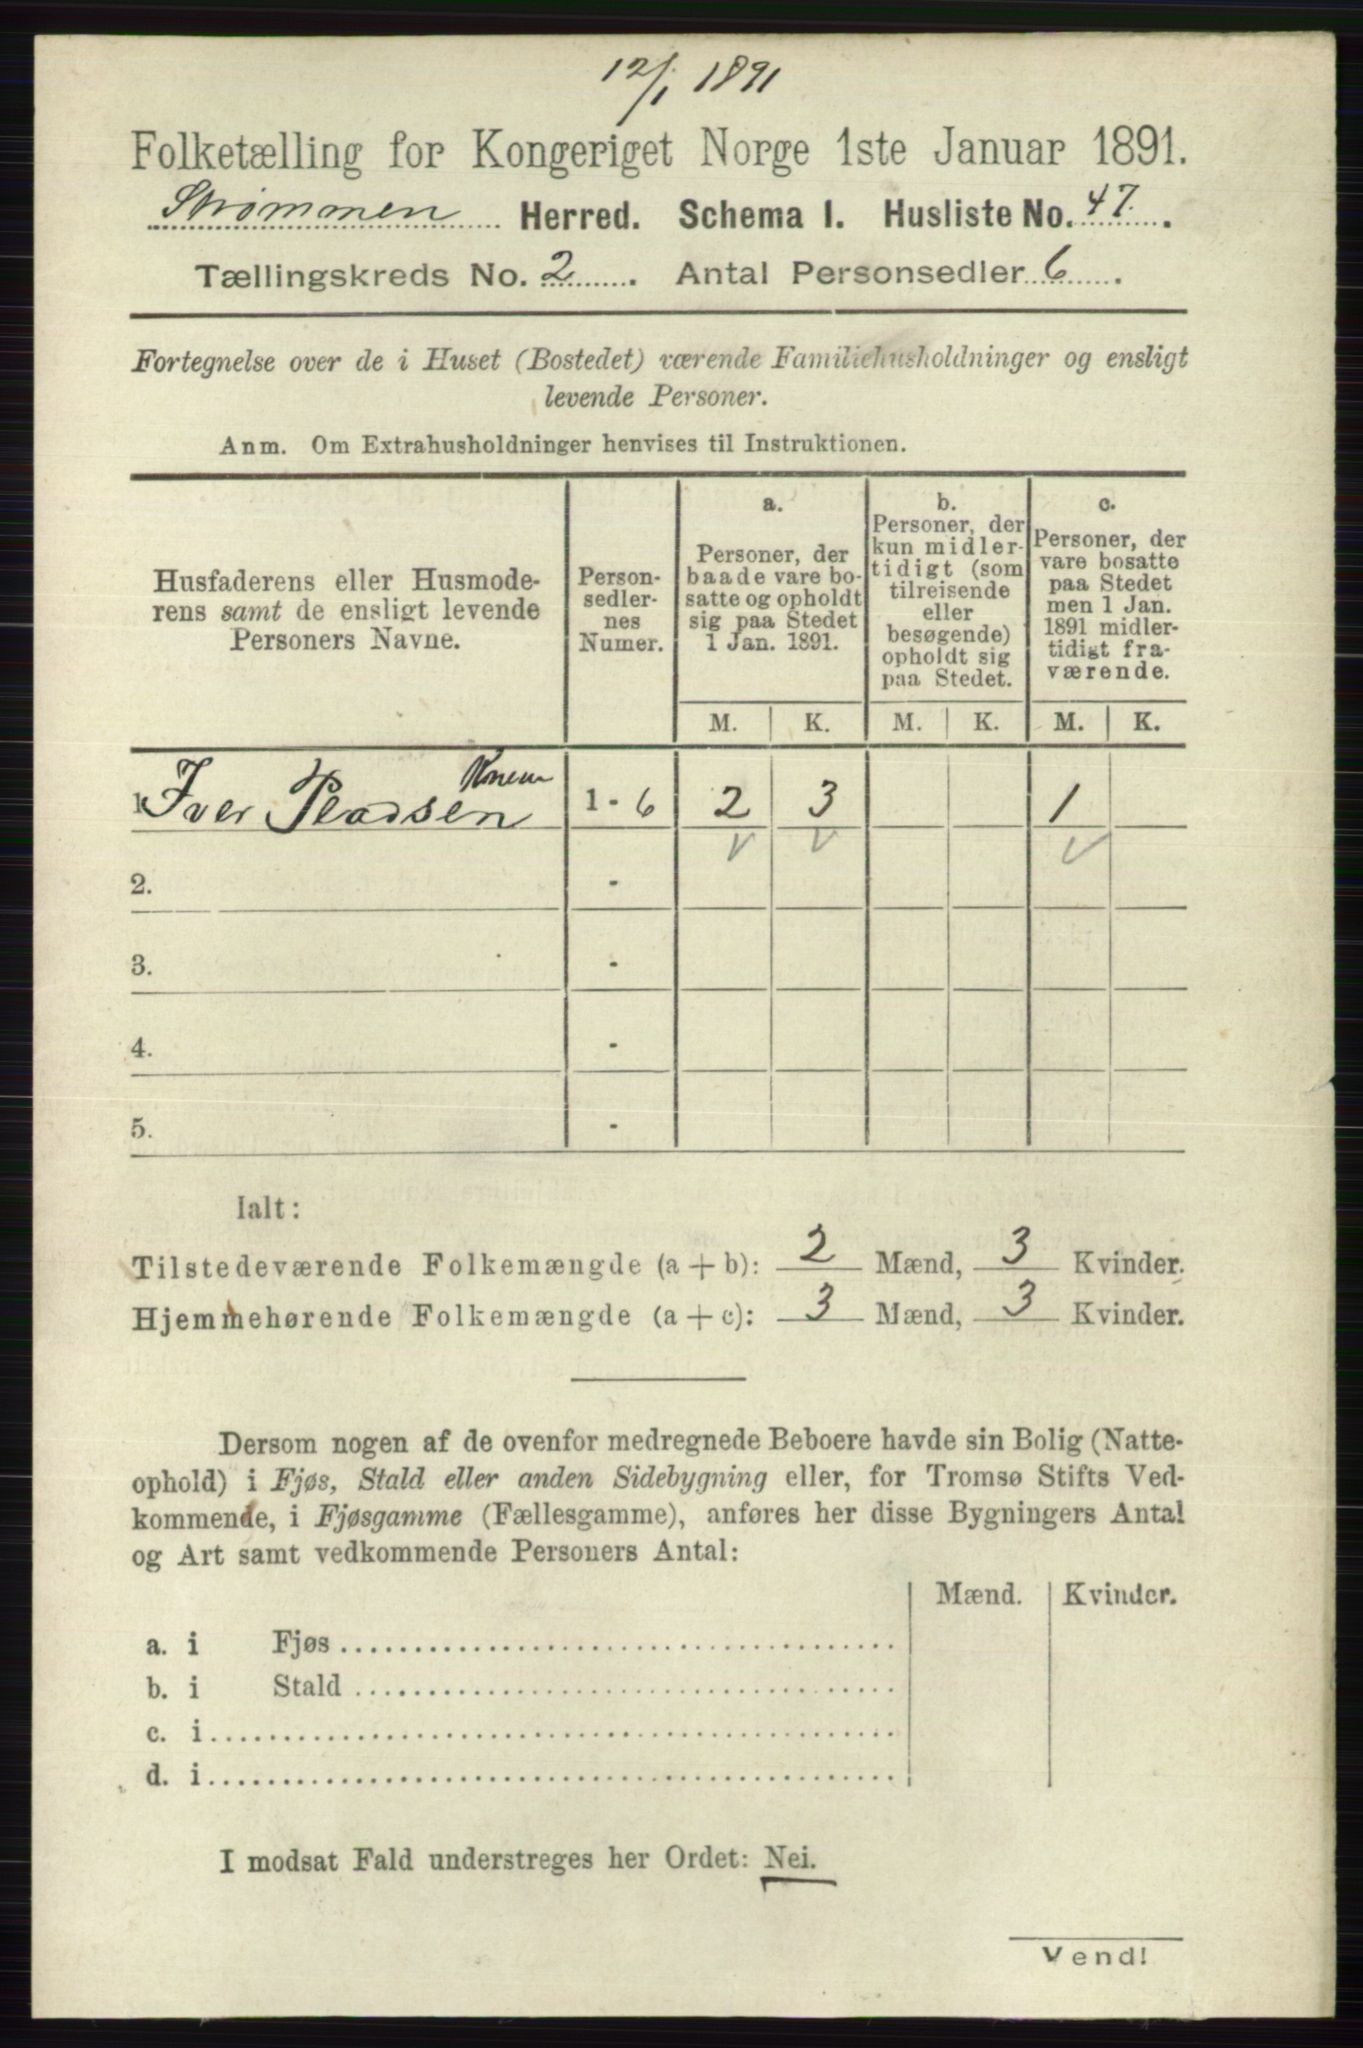 12/1 1891
Folketælling for Kongeriget Norge 1ste Januar 1891.
Strømmen Herred. Schema I. Husliste No. 47.
Tællingskreds No. 2. Antal Personsedler 6.
Fortegnelse over de i Huset (Bostedet) værende Familiehusholdninger og ensligt
levende Personer.
Anm. Om Extrahusholdninger henvises til Instruktionen.
Husfaderens eller Husmode-
rens samt de ensligt levende
Personers Navne.
Person-
sedler-
nes
Numer.
a.
Personer, der
baade vare bo-
satte og opholdt
sig paa Stedet
1 Jan. 1891.
b.
Personer, der
kun midler-
tidigt (som
tilreisende
eller
besøgende)
opholdt sig
paa Stedet.
c.
Personer, der
vare bosatte
paa Stedet
men 1 Jan.
1891 midler-
tidigt fra-
værende.
M. K. M. K. M. K.
1. Iver Pladsen 1 - 6 2 3 1
2. -
3. -
4. -
5. -
Ialt:
Tilstedeværende Folkemængde (a + b): 2 Mænd, 3 Kvinder.
Hjemmehørende Folkemængde (a + c): 3 Mænd, 3 Kvinder.
Dersom nogen af de ovenfor medregnede Beboere havde sin Bolig (Natte-
ophold) i Fjøs, Stald eller anden Sidebygning eller, for Tromsø Stifts Ved-
kommende, i Fjøsgamme (Fællesgamme), anføres her disse Bygningers Antal
og Art samt vedkommende Personers Antal:
Mænd. Kvinder.
a. i Fjøs
b. i Stald
c. i
d. i
I modsat Fald understreges her Ordet: Nei.
Vend!